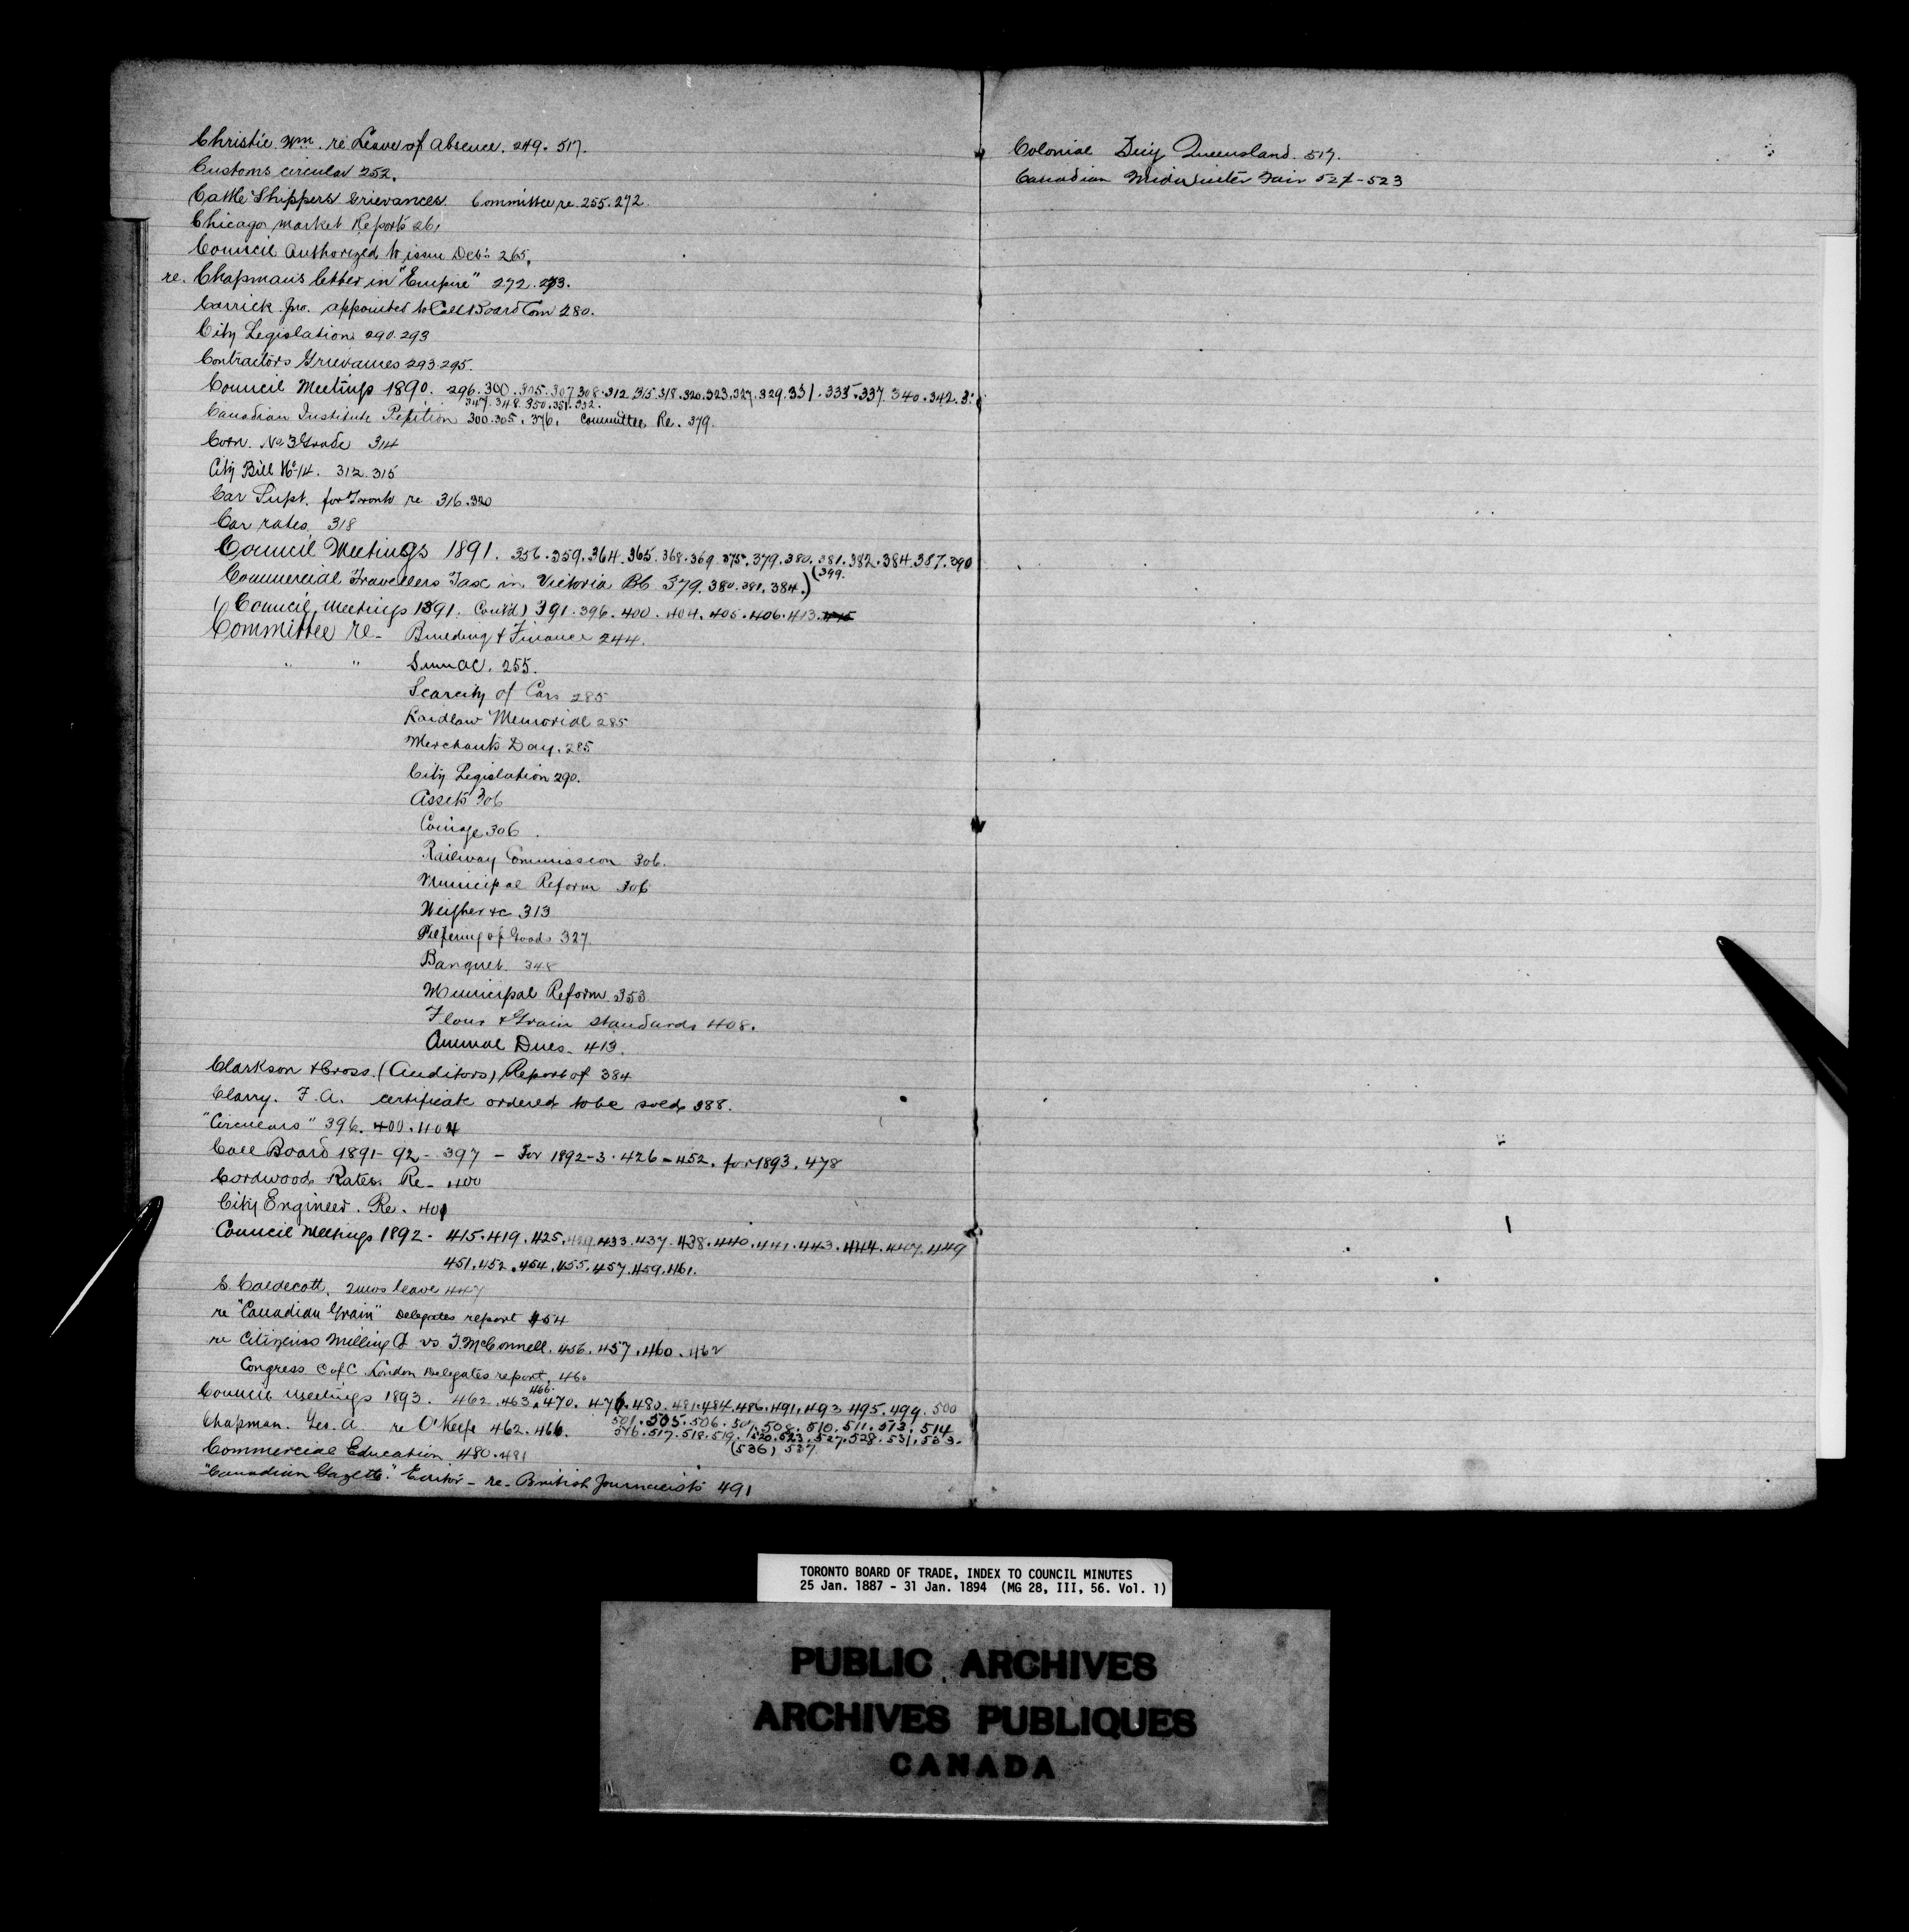 Christie Wm. re Leave of Absence. 249. 517.
Customs circular 252.
Cattle Shippers Grievances Committee re. 255. 272.
Chicago Market Reports 261
Council Authorized to issue Deb's 265.
re. Chapman's letter in "Empire" 272. 273.
Carrick. Jno. appointed to Call Board Com 280.
City Legislation 290. 293
Contractors Grievances 293. 295.
Council Meetings 1890. 296. 300. 305. 307. 308. 312. 315. 318. 320. 323. 327. 329. 331. 335. 337. 340. 342.
347. 348. 350. 351. 352.
Canadian Institute Petition 300. 305. 376. Committee Re. 379.
Corn. No 3 Grade 314
City Bill No 14. 312. 315
Car Supt. for Toronto re 316. 320
Car rates. 318
Council Meetings 1891. 356. 359. 364. 365. 368. 369. 375. 379. 380. 381. 382. 384. 387. 390
Commercial Travellers Tax in Victoria BC 379. 380. 381. 384.) (399.
(Council Meetings 1891. Cont'd) 391. 396. 400. 404. 405. 406. 413. 415
Committee re - Building & Finance 244.
" " Sumac. 255.
Scarcity of Cars 285
Laidlaw Memorial 285
Merchants Day. 285
City Legislation 290.
Assets 306
Coinage 306.
Railway Commission 306.
Municipal Reform 306
Weigher &c 313
Pilfering of Goods 327
Banquet. 348
Municipal Reform. 353
Flour & Grain Standards 408.
Annual Dues. 413.
Clarkson & Cross. (Auditors) Report of 384
Clarry. F. A. certificate ordered to be sold 388.
"Circulars" 396. 400. 404
Call Board 1891-92 - 397 - For 1892-3. 426 - 452. for 1893. 478
Cordwood Rates. Re - 400
City Engineer. Re. 401
Council Meetings 1892 - 415. 419. 425. 429. 433. 437. 438. 440. 441. 443. 444. 447. 449
451. 452. 454. 455. 457. 459. 461.
S. Caldecott. 2 mos leave 447
re "Canadian Grain" Delegates report 454
re Citizens Milling Co vs T. McConnell. 456. 457. 460. 462
Congress C of C London Delegates report. 460
Council Meetings 1893. 462. 463. 466. 470. 476. 480. 481. 484. 486. 491. 493. 495. 499. 500
501. 505. 506. 507. 508. 510. 511. 513. 514
Chapman. Geo. A. re O'Keefe 462. 466.
516. 517. 518. 519. 520. 523. 527. 528. 531. 533.
Commercial Education 480. 481 (536) 537
"Canadian Gazette." Editor - re - British Journalists 491
Colonial Queensland. 517.
Canadian Midwinter Fair 521-523
TORONTO BOARD OF TRADE, INDEX TO COUNCIL MINUTES
25 Jan. 1887 - 31 Jan. 1894 (MG 28, III, 56. Vol. 1)
PUBLIC ARCHIVES
ARCHIVES PUBLIQUES
CANADA